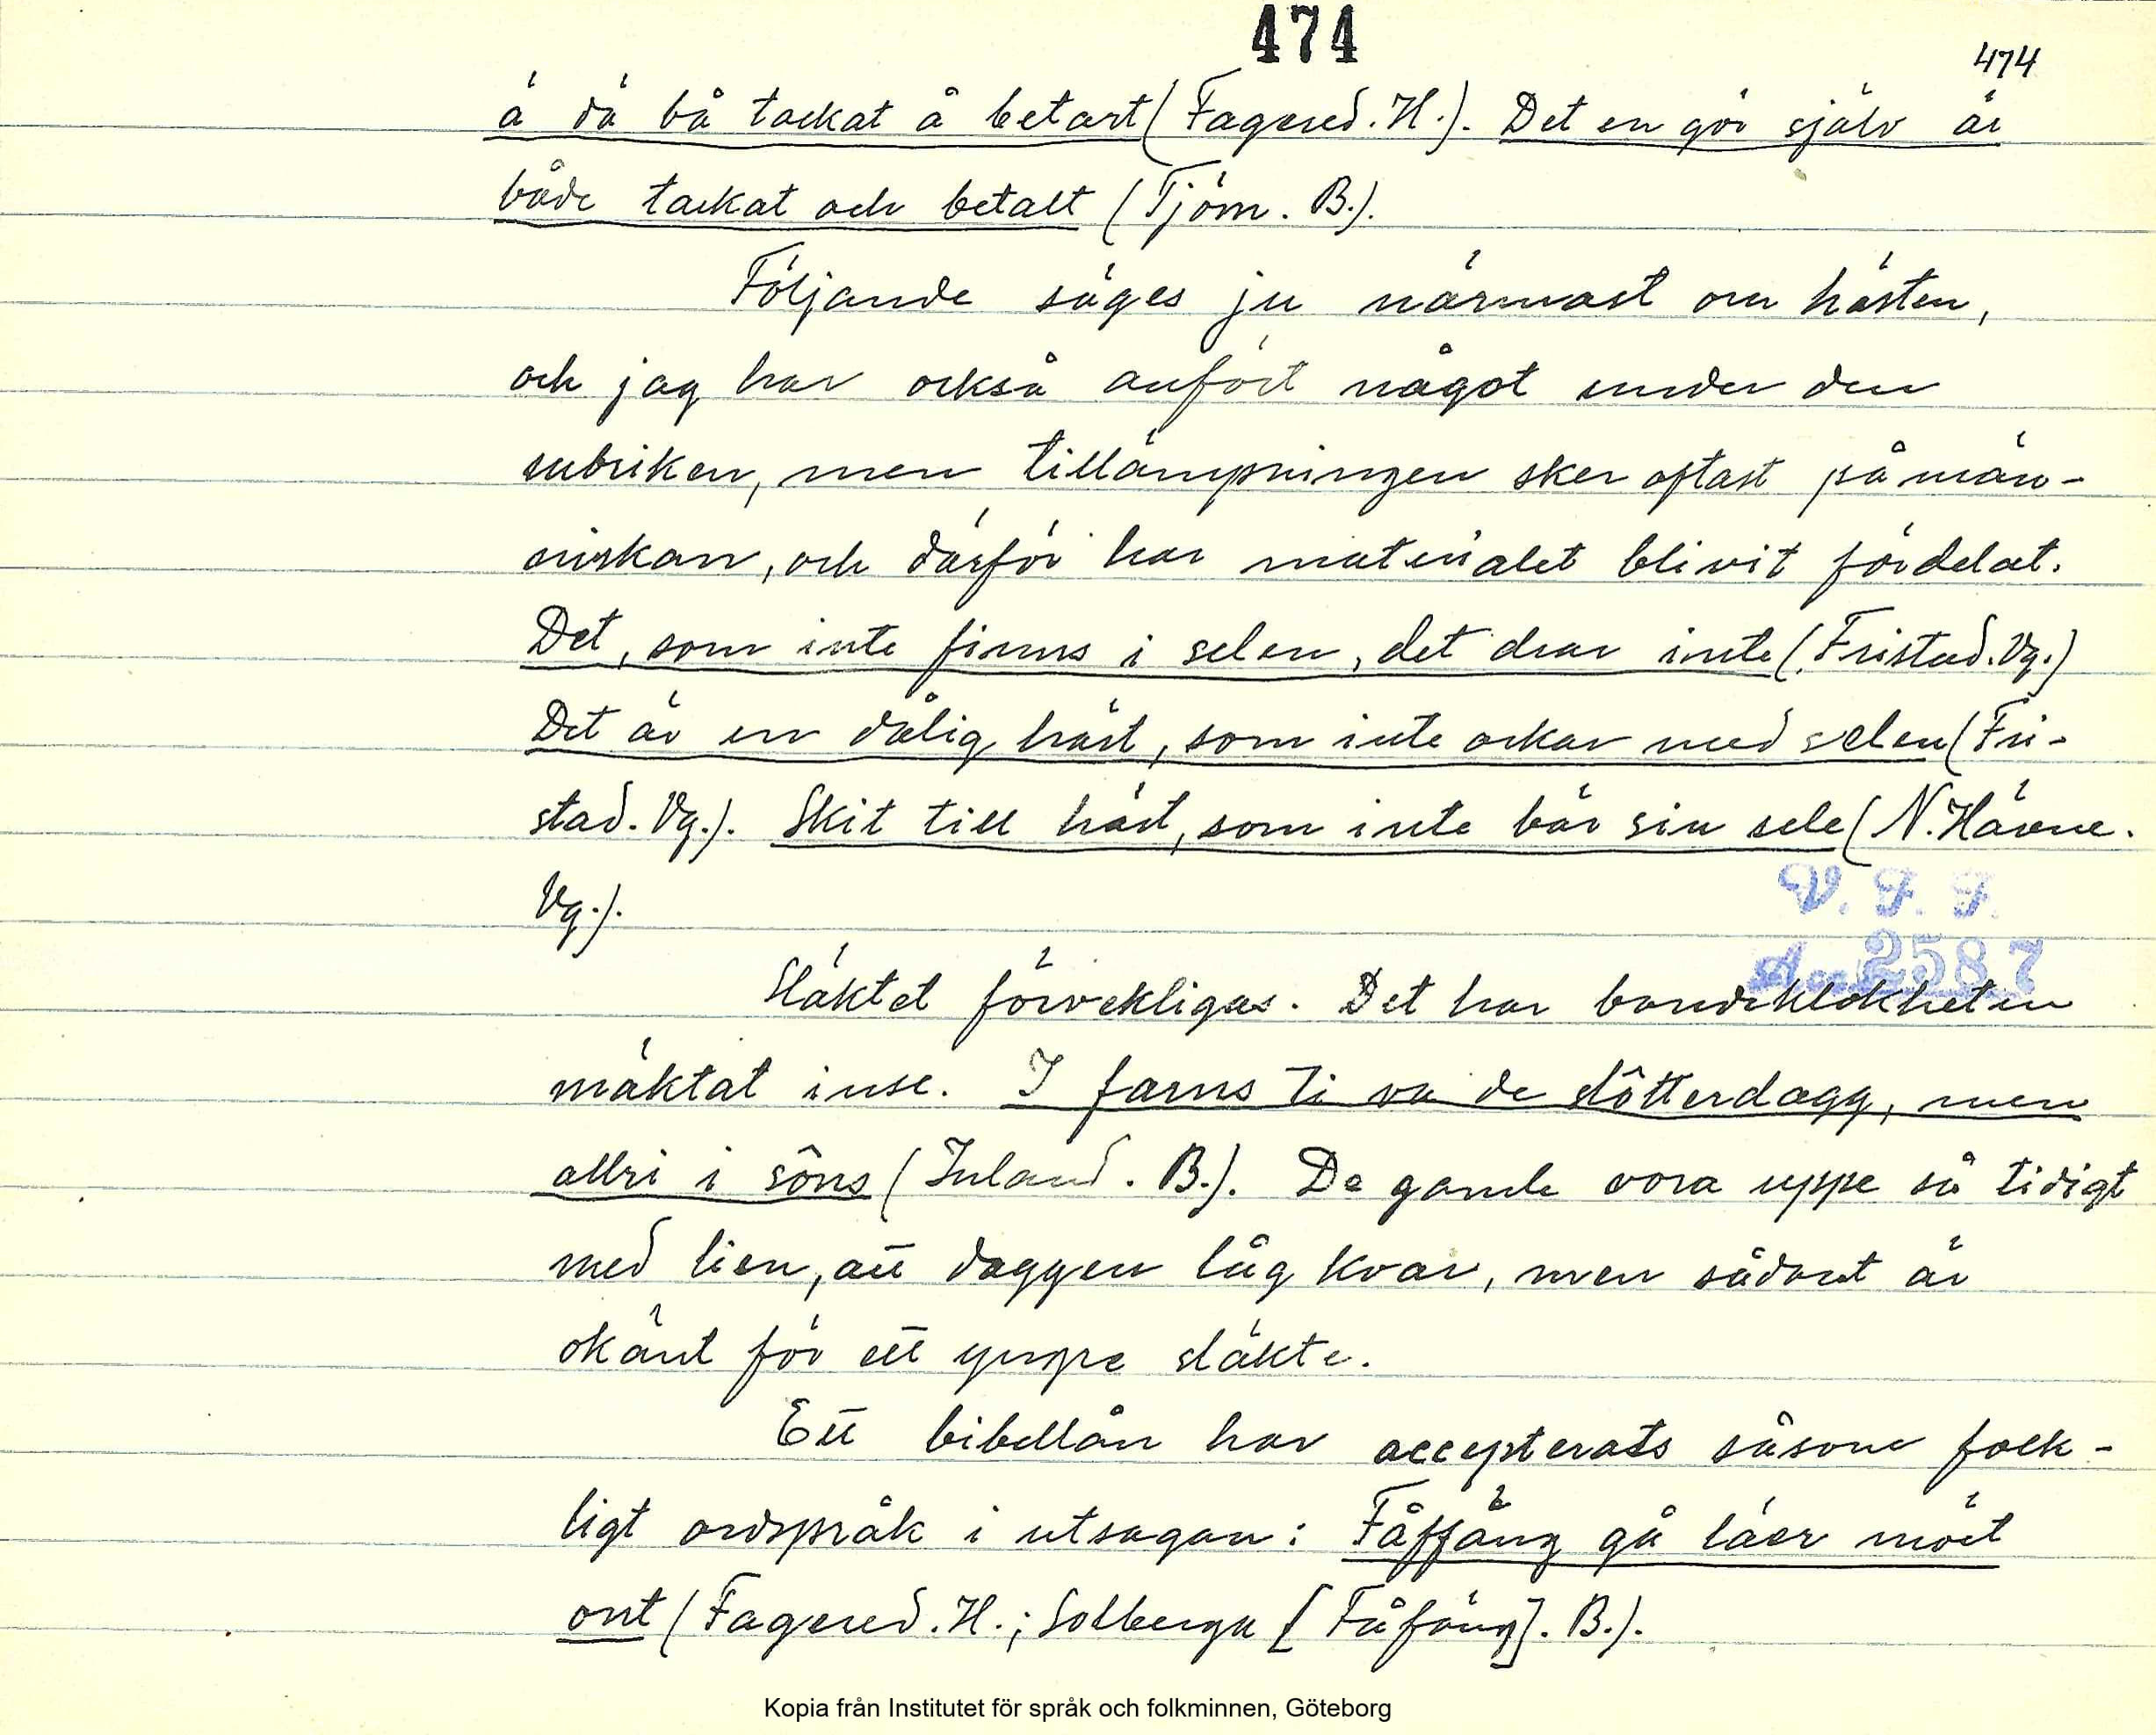 474
474
ä dä bå tackat å betart (Fagered. H.). Det en gör själv är
både tackat och betalt (Tjörn. B.).
Följande säges ju närmast om hästen,
och jag har också anfört något under den
rubriken, men tillämpningen sker oftast på män-
niskan, och därför har materialet blivit fördelat.
Det, som inte finns i selen, det drar inte (Fristad. Vg.)
Det är en dålig häst, som inte orkar med selen (Fri-
stad. Vg.). Skit till häst, som inte bär sin sele (N. Härene.
Vg.).
V. F. F.
Acc 2587
Släktet förvekligas. Det har bondeklokheten
mäktat inse. I farns ti va de slôtterdagg, men
allri i sôns (Inland. B.). De gamle vora uppe så tidigt
med lien, att daggen låg kvar, men sådant är
okänt för ett yngre släkte.
Ett bibellån har accepterats såsom folk-
ligt ordspråk i utsagan: Fåffäng gå läer möet
ont (Fagered. H.; Solberga [Fåfäng]. B.).
Kopia från Institutet för språk och folkminnen, Göteborg